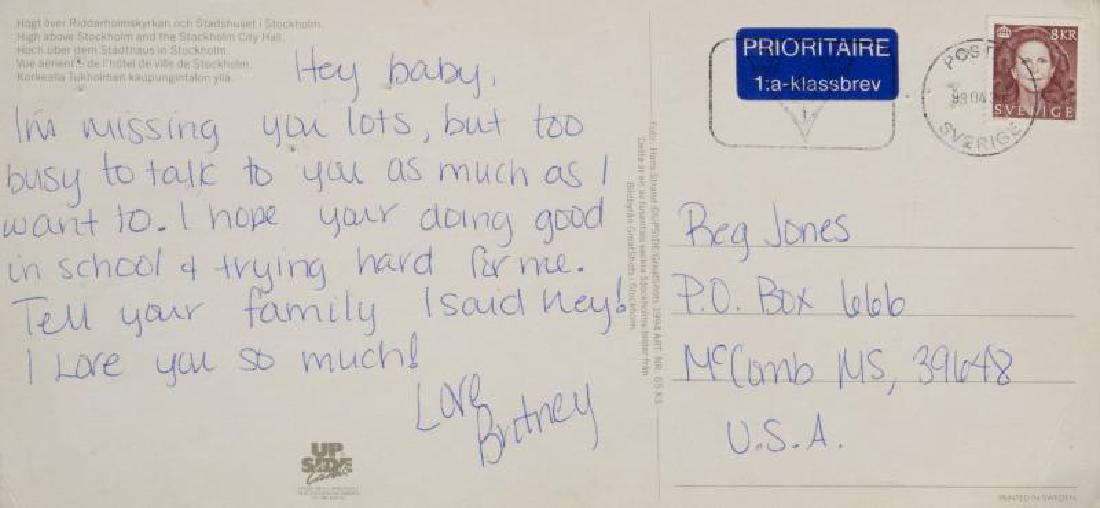 Högt över Riddarholmskyrkan och Stadshuset i Stockholm.
High above Stockholm and the Stockholm City Hall.
Hoch über dem Stadthaus in Stockholm.
Vue aérienne de l'hôtel de ville de Stockholm.
Korkealla Tukholman kaupungintalon yllä.
Hey baby,
I'm missing you lots, but too
busy to talk to you as much as I
want to. I hope your doing good
in school & trying hard for me.
Tell your family I said hey!
I Love you so much!
Love
Britney
UP
SIDE
Foto: Hans Strand
GreatShots, 1994 ART. NR.
PRIORITAIRE
1:a-klassbrev
POST
SVERIGE
8KR
SVERIGE
Reg Jones
P.O. Box 666
McComb MS, 39648
U.S.A.
PRINTED IN SWEDEN